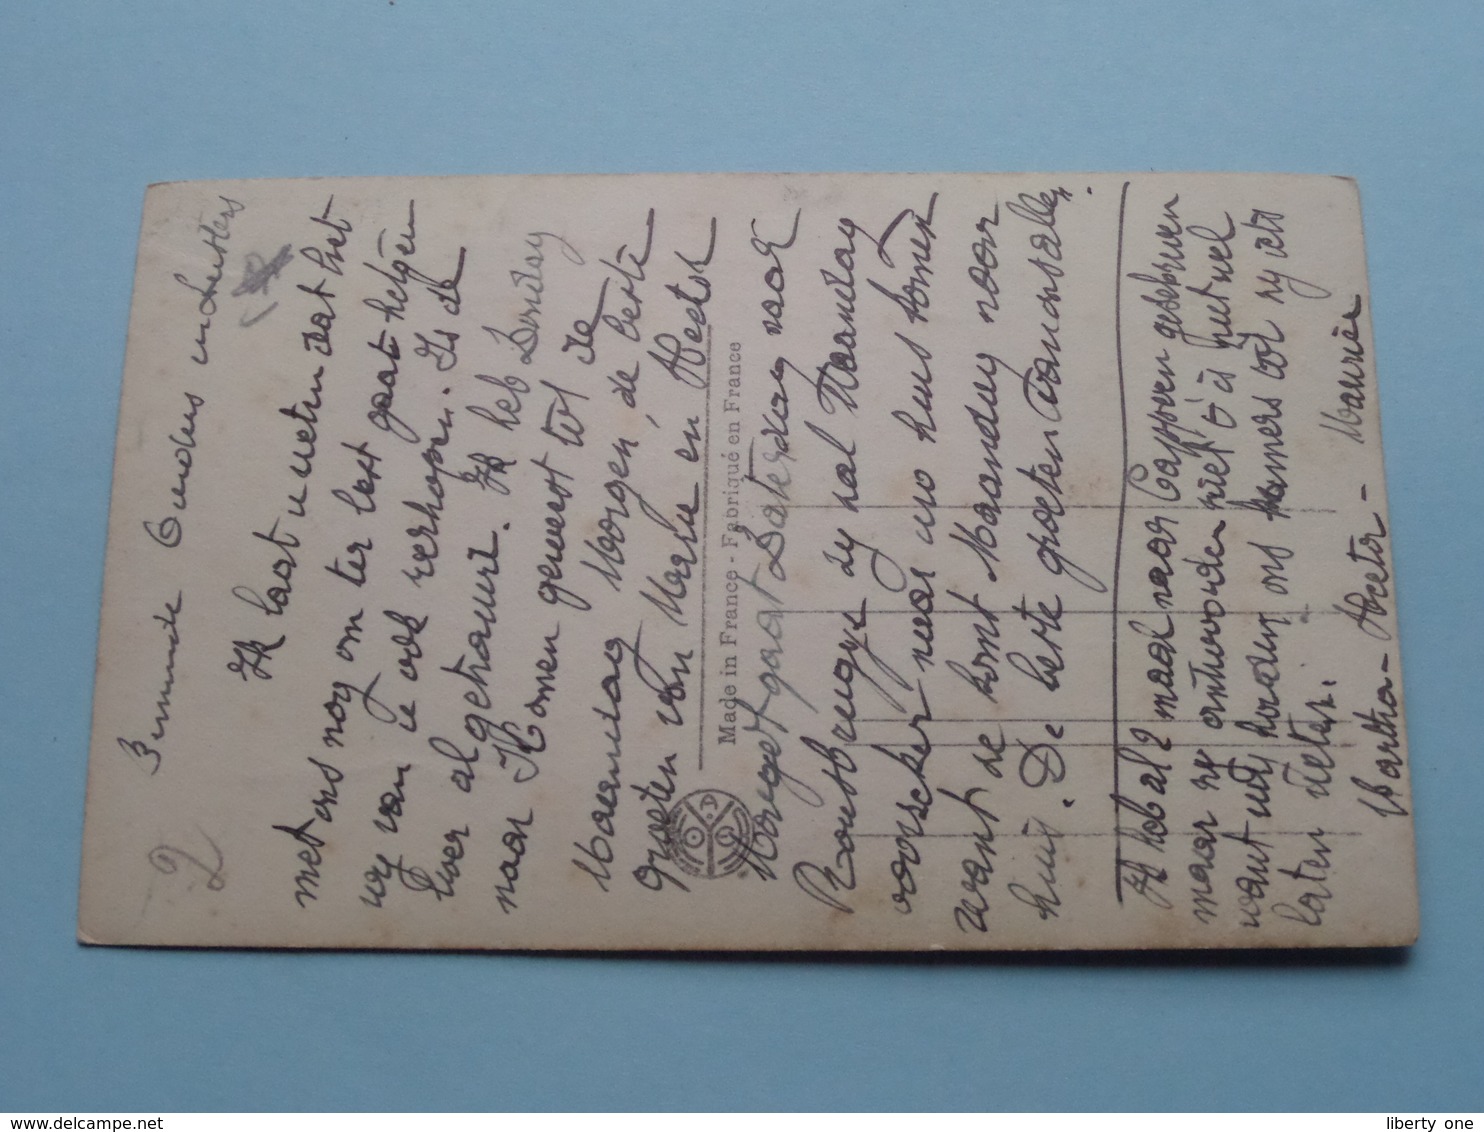 2
Beminde Ouders en Zusters
Ik laat u weten dat het
met ons nog om ter best gaat hetgeen
wy van u ook verhopen. Is de
over al getrouwt. Ik heb Zondag
naar Komen geweest tot de
Maandag Morgen, de beste
groeten van Maria en Hector
Made in France - Fabriqué en France
Mauget gaat Zaterdag naar
zy zal Maandag
naar uw huis komen
want ze komt Maandag naar
huis. De beste groeten van allen.
Ik heb al 2 maal naar Cappen geschreven
maar zy antwoorden niet
want wy houden ons kamers zy iets
laten weten.
Martha - Hector - Maurice
liberty one